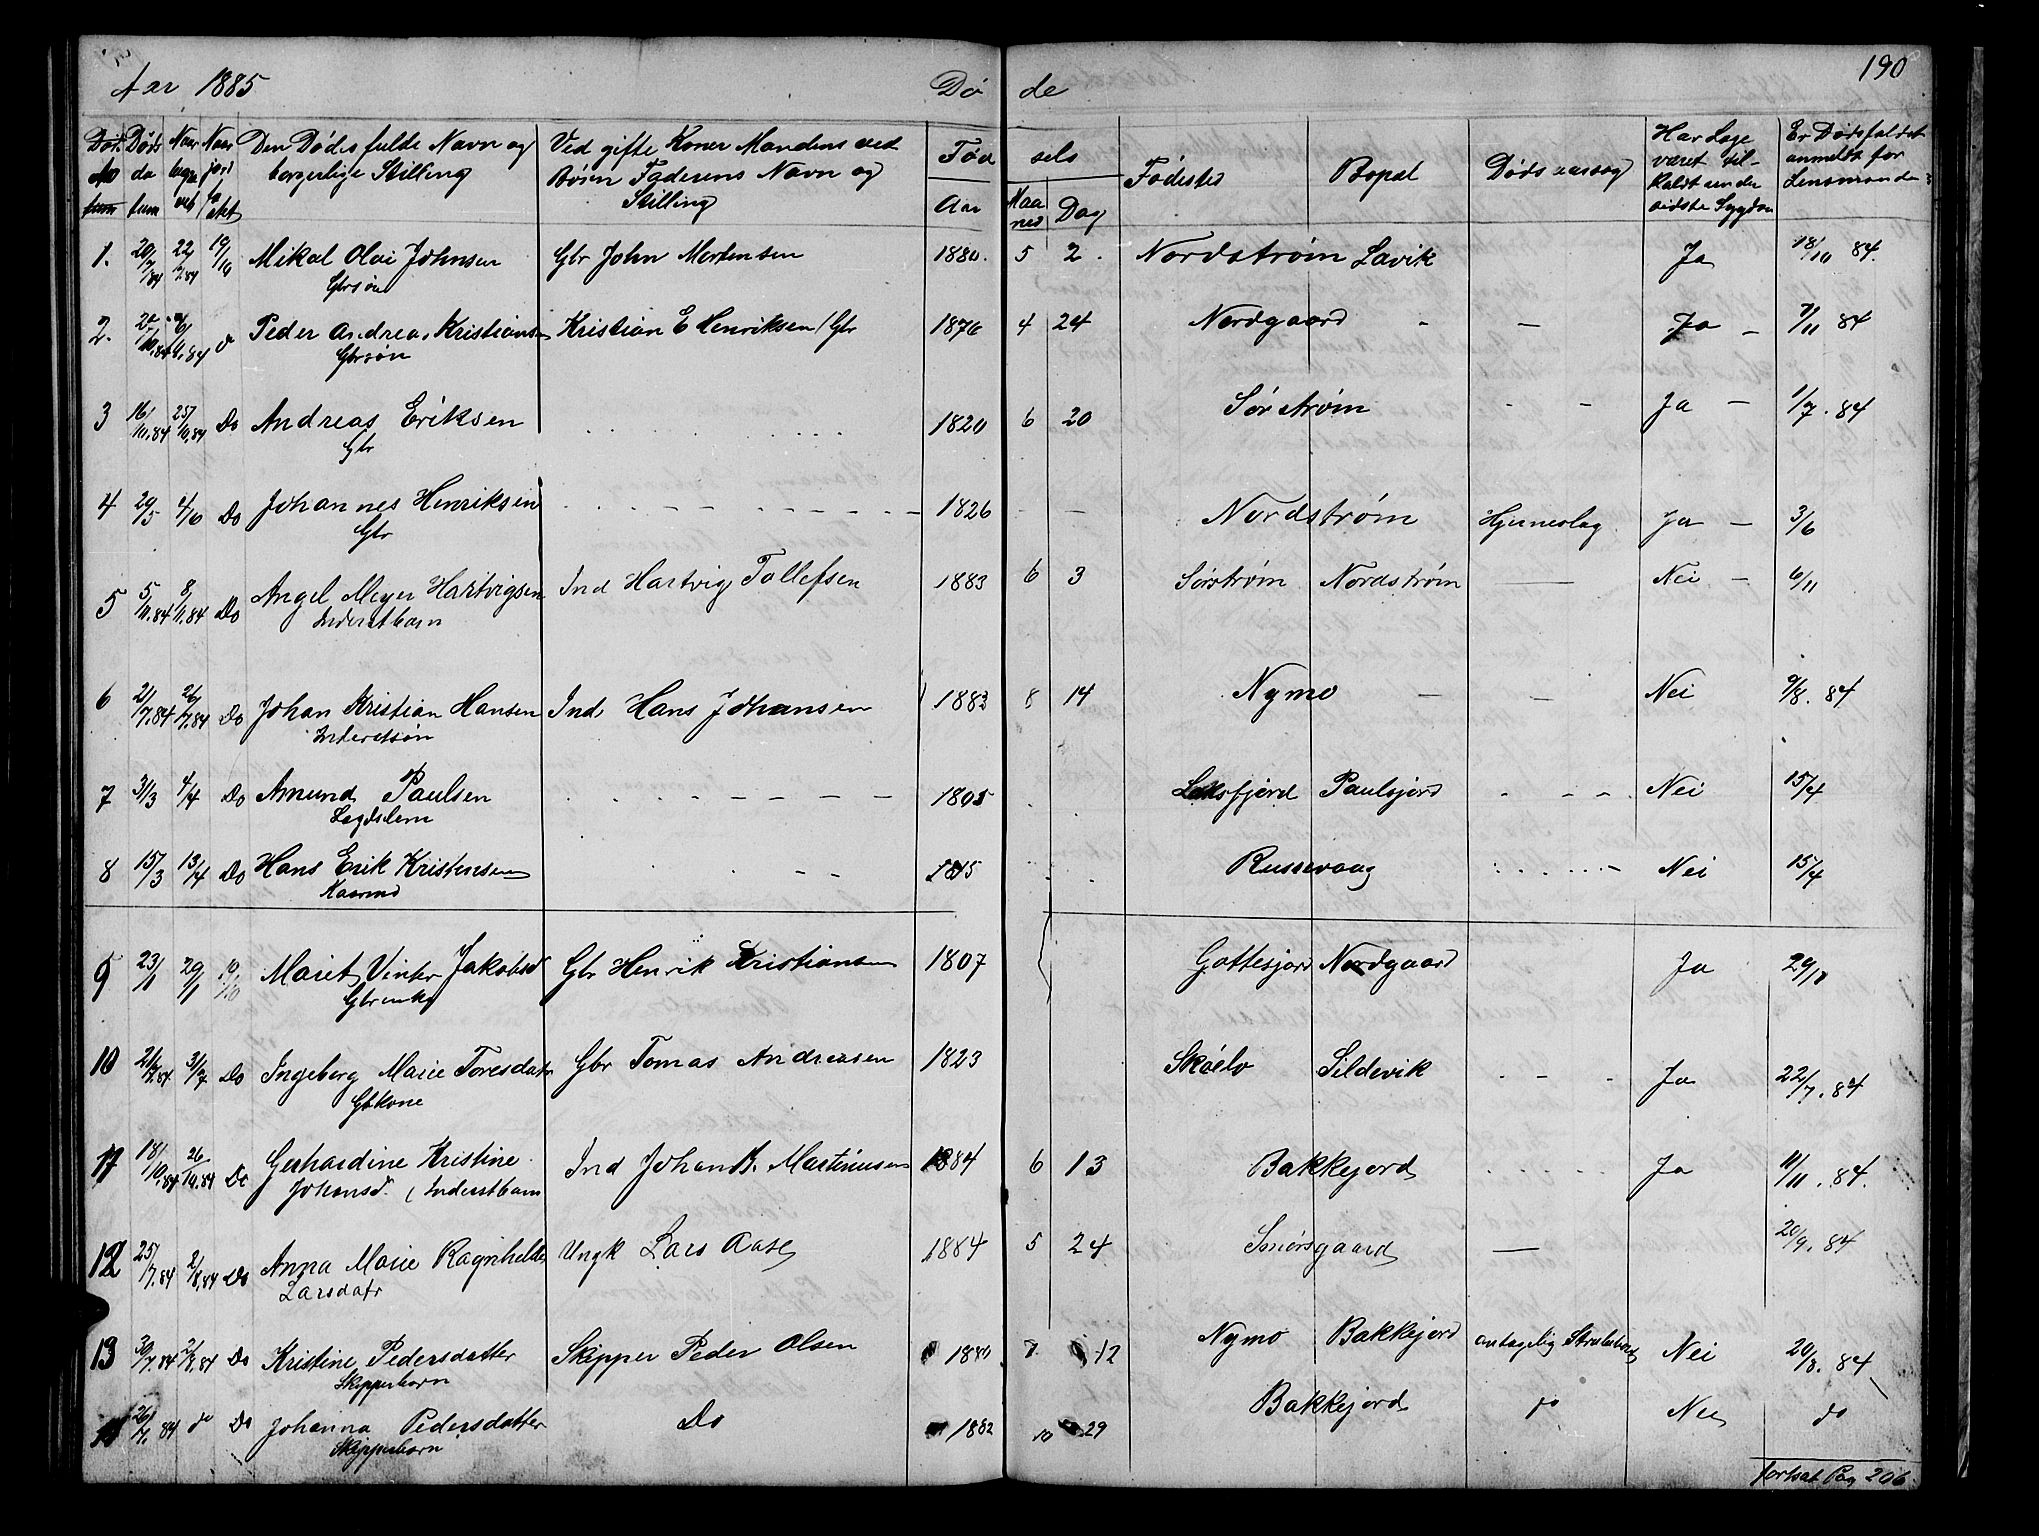 Aar 1885 Døde 190
Døds da tum Naar begra veb Naar jord fa stet Den Dødes fulde Navn og borgerlige Stilling Ved gifte Koner Mandens ved Børn Faderens Navn og Stilling Fødsels Aar Maaned Dag Fødested Bopæl Dødsaarsag Har Læge været til- kaldt under sidste Sygdom Er Dødsfaldet anmeldt for Lensmanden
1. 20/7/84 22/7/84 19/10 Mikal Olai Johnsen Gbr John Mortensen 1880. 5 2. Nordstrøm Lavik Ja 18/10 84.
Gbrsøn
2. Peder Andreas Kristiansen Kristian E Henriksen / Gbr 1876 4 24 Nordgaard - - Ja - 7/11 84
Gbrsøn
3 16/10.84 25/10.84 Do Andreas Eriksen 1820 6 20 Sørstrøm - - Ja - 1/7. 84
Gbr
4 29/5 4/6 Do Johannes Henriksen 1826 - - Nordstrøm Hjerneslag Ja - 3/6
Gbr
5 5/11.84 8/11.84 Do Angel Meyer Hartvigsen Ind Hartvig Tollefsen 1883 6 3 Sørstrøm Nordstrøm - Nei - 6/11
Inderstbarn
6 21/7.84 26/7.84 Do Johan Kristian Hansen Ind. Hans Johansen 1883 8 14 Nymo - - Nei 9/8. 84
Inderstsøn
7 31/3 4/4 Do Amund Paulsen 1805 Laksfjord Paulsjord - - - Nei 15/4
Lægdslem
8 15/3 13/4 Do Hans Erik Kristensen 1815 Russevaag Nei 15/4
Kaarmd
9 23/1 29/1 19/10 Maret Vinter Jakobsd Gbr Henrik Kristiansen 1807 Gottesjord Nordgaard Ja
Gbrenke
10 21/7.84 31/7 Do Ingeberg Marie Toresdatr Gbr Tomas Andreasen 1823 Skåelv Sildevik - - - Ja 22/7. 84
Gbkone
11 18/10.84 26/10.84 Do Gerhardine Kristine Ind Johan K. Martinusen 1884 6 13 Bakkejord Ja 11/11. 84.
Johansd. ( Inderstbarn
12 25/7.84 2/8.84 Do Anna Marie Ragnhilde Ungk Lars Aase 1884 5 24 Smørsgaard - 20/9. 84
Larsdatr
13 30/7.84 2/8.84 Do Kristine Pedersdatter Skipper Peder Olsen 1880 7 12 Nymo Bakkejord antagelig Nei 20/8. 84
Skipperbarn
26/7. 84 do Do Johanna Pedersdatter Do 1882 10 29 Bakkejord do Nei do
Skipperbarn
fortsat Pag 206